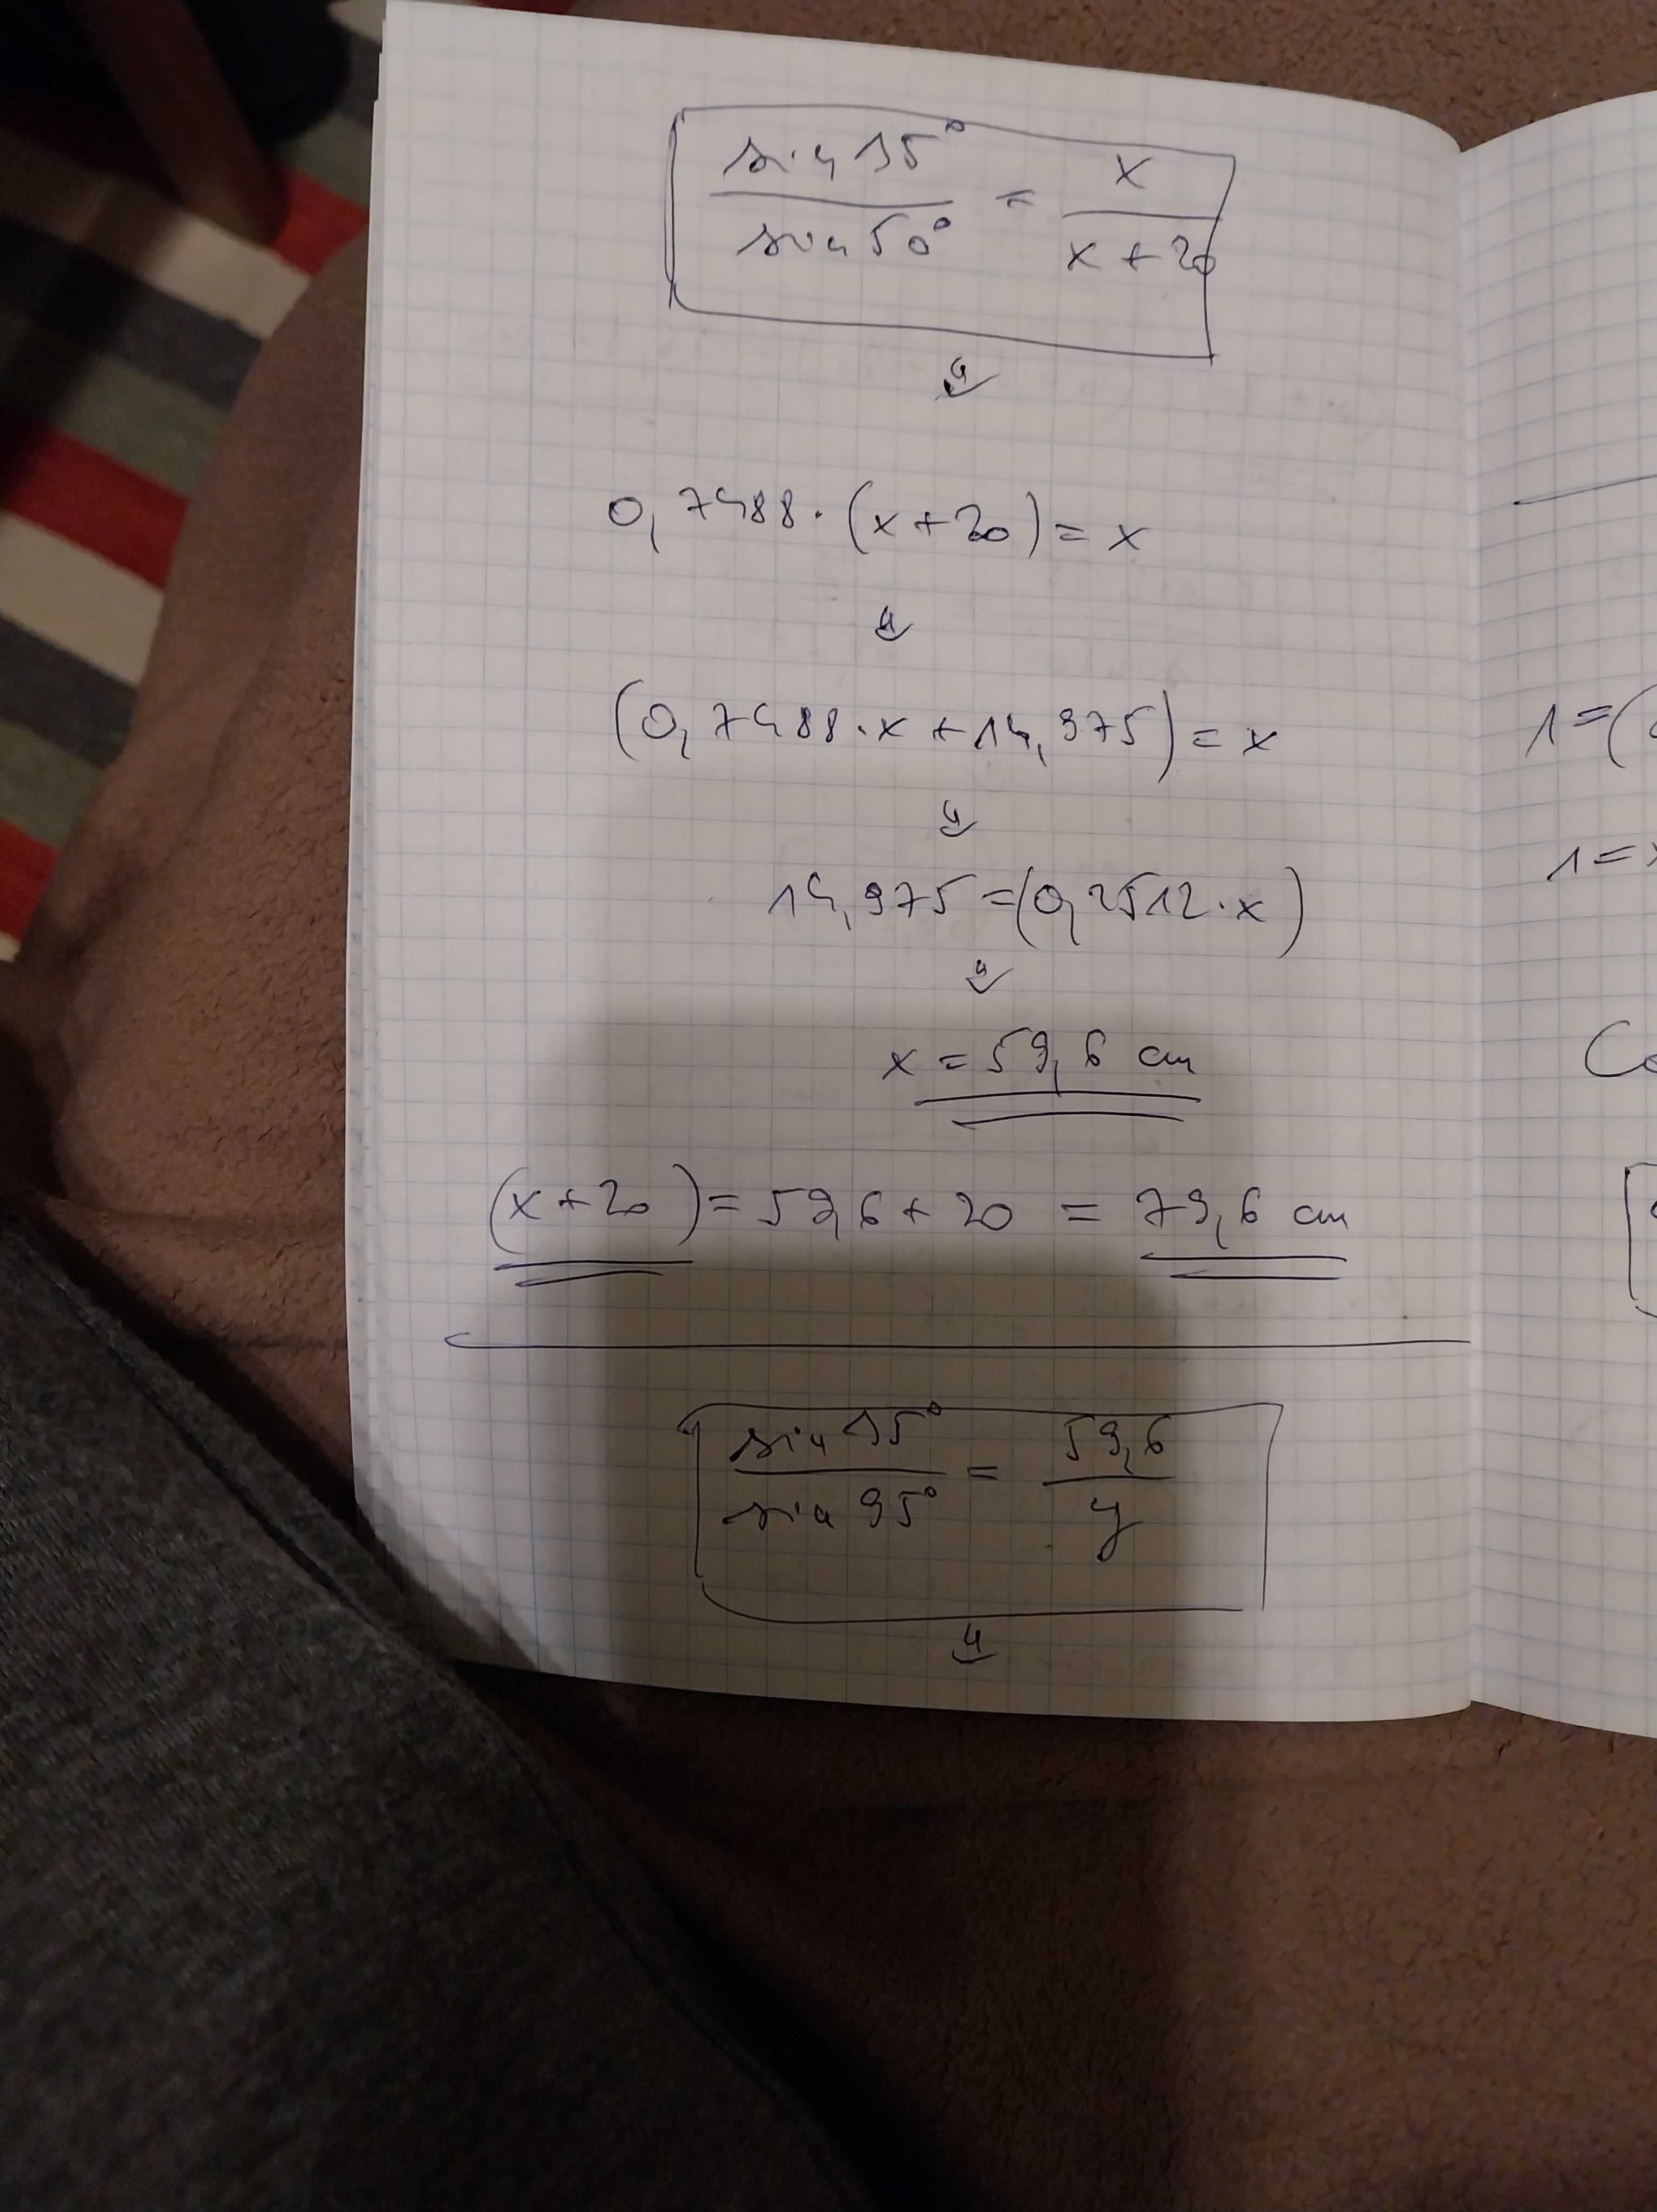 sin 35° / sin 50° = x / x + 20
0,7488 · (x + 20) = x
(0,7488 · x + 14,975) = x
14,975 = (0,2512 · x)
x = 59,6 cm
(x + 20) = 59,6 + 20 = 79,6 cm
sin 35° / sin 95° = 59,6 / y
1 = (
1 =